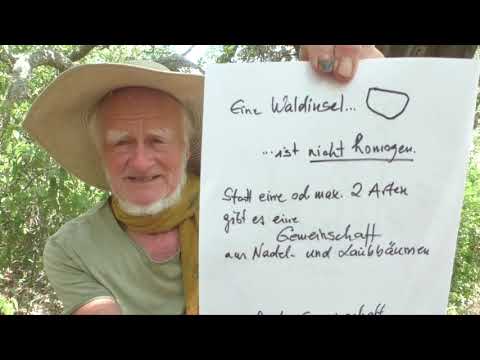 Eine Waldinsel...
...ist nicht homogen.
Statt eine od max. 2 Arten
gibt es eine
Gemeinschaft
aus Nadel- und Laubbäumen